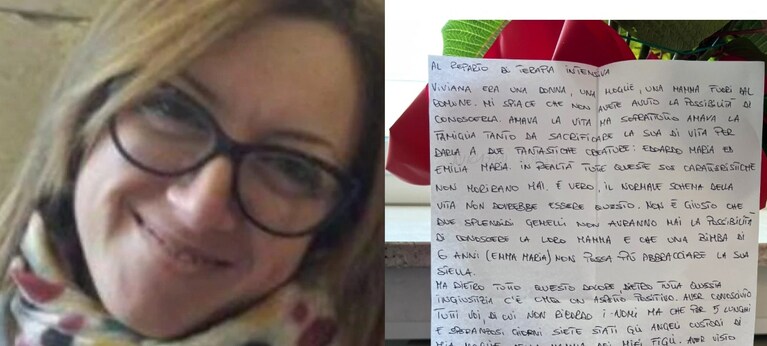 AL REPARTO DI TERAPIA INTENSIVA
VIVIANA ERA UNA DONNA, UNA MOGLIE, UNA MAMMA FUORI DAL
COMUNE. MI SPIACE CHE NON AVETE AVUTO LA POSSIBILITÀ DI
CONOSCERLA. AMAVA LA VITA MA SOPRATTUTTO AMAVA LA
FAMIGLIA TANTO DA SACRIFICARE LA SUA DI VITA PER
DARLA A DUE FANTASTICHE CREATURE: EDOARDO MARIA ED
EMILIA MARIA. IN REALTÀ TUTTE QUESTE SUE CARATTERISTICHE
NON MORIRANO MAI. È VERO, IL NORMALE SCHEMA DELLA
VITA NON DOVREBBE ESSERE QUESTO. NON È GIUSTO CHE
DUE SPLENDIDI GEMELLI NON AVRANNO MAI LA POSSIBILITÀ
DI CONOSCERE LA LORO MAMMA E CHE UNA BIMBA DI
6 ANNI (EMMA MARIA) NON POSSA PIÙ ABBRACCIARE LA SUA
STELLA.
MA DIETRO TUTTO QUESTO DOLORE, DIETRO TUTTA QUESTA
INGIUSTIZIA C'È UN ASPETTO POSITIVO. AVER CONOSCIUTO
TUTTI VOI, DI CUI NON RICORDO I NOMI MA CHE PER 5 LUNGHI
E SPERANZOSI GIORNI SIETE STATI GLI ANGELI CUSTODI DI
MIA MOGLIE E MAMMA DEI MIEI FIGLI. AVER VISTO